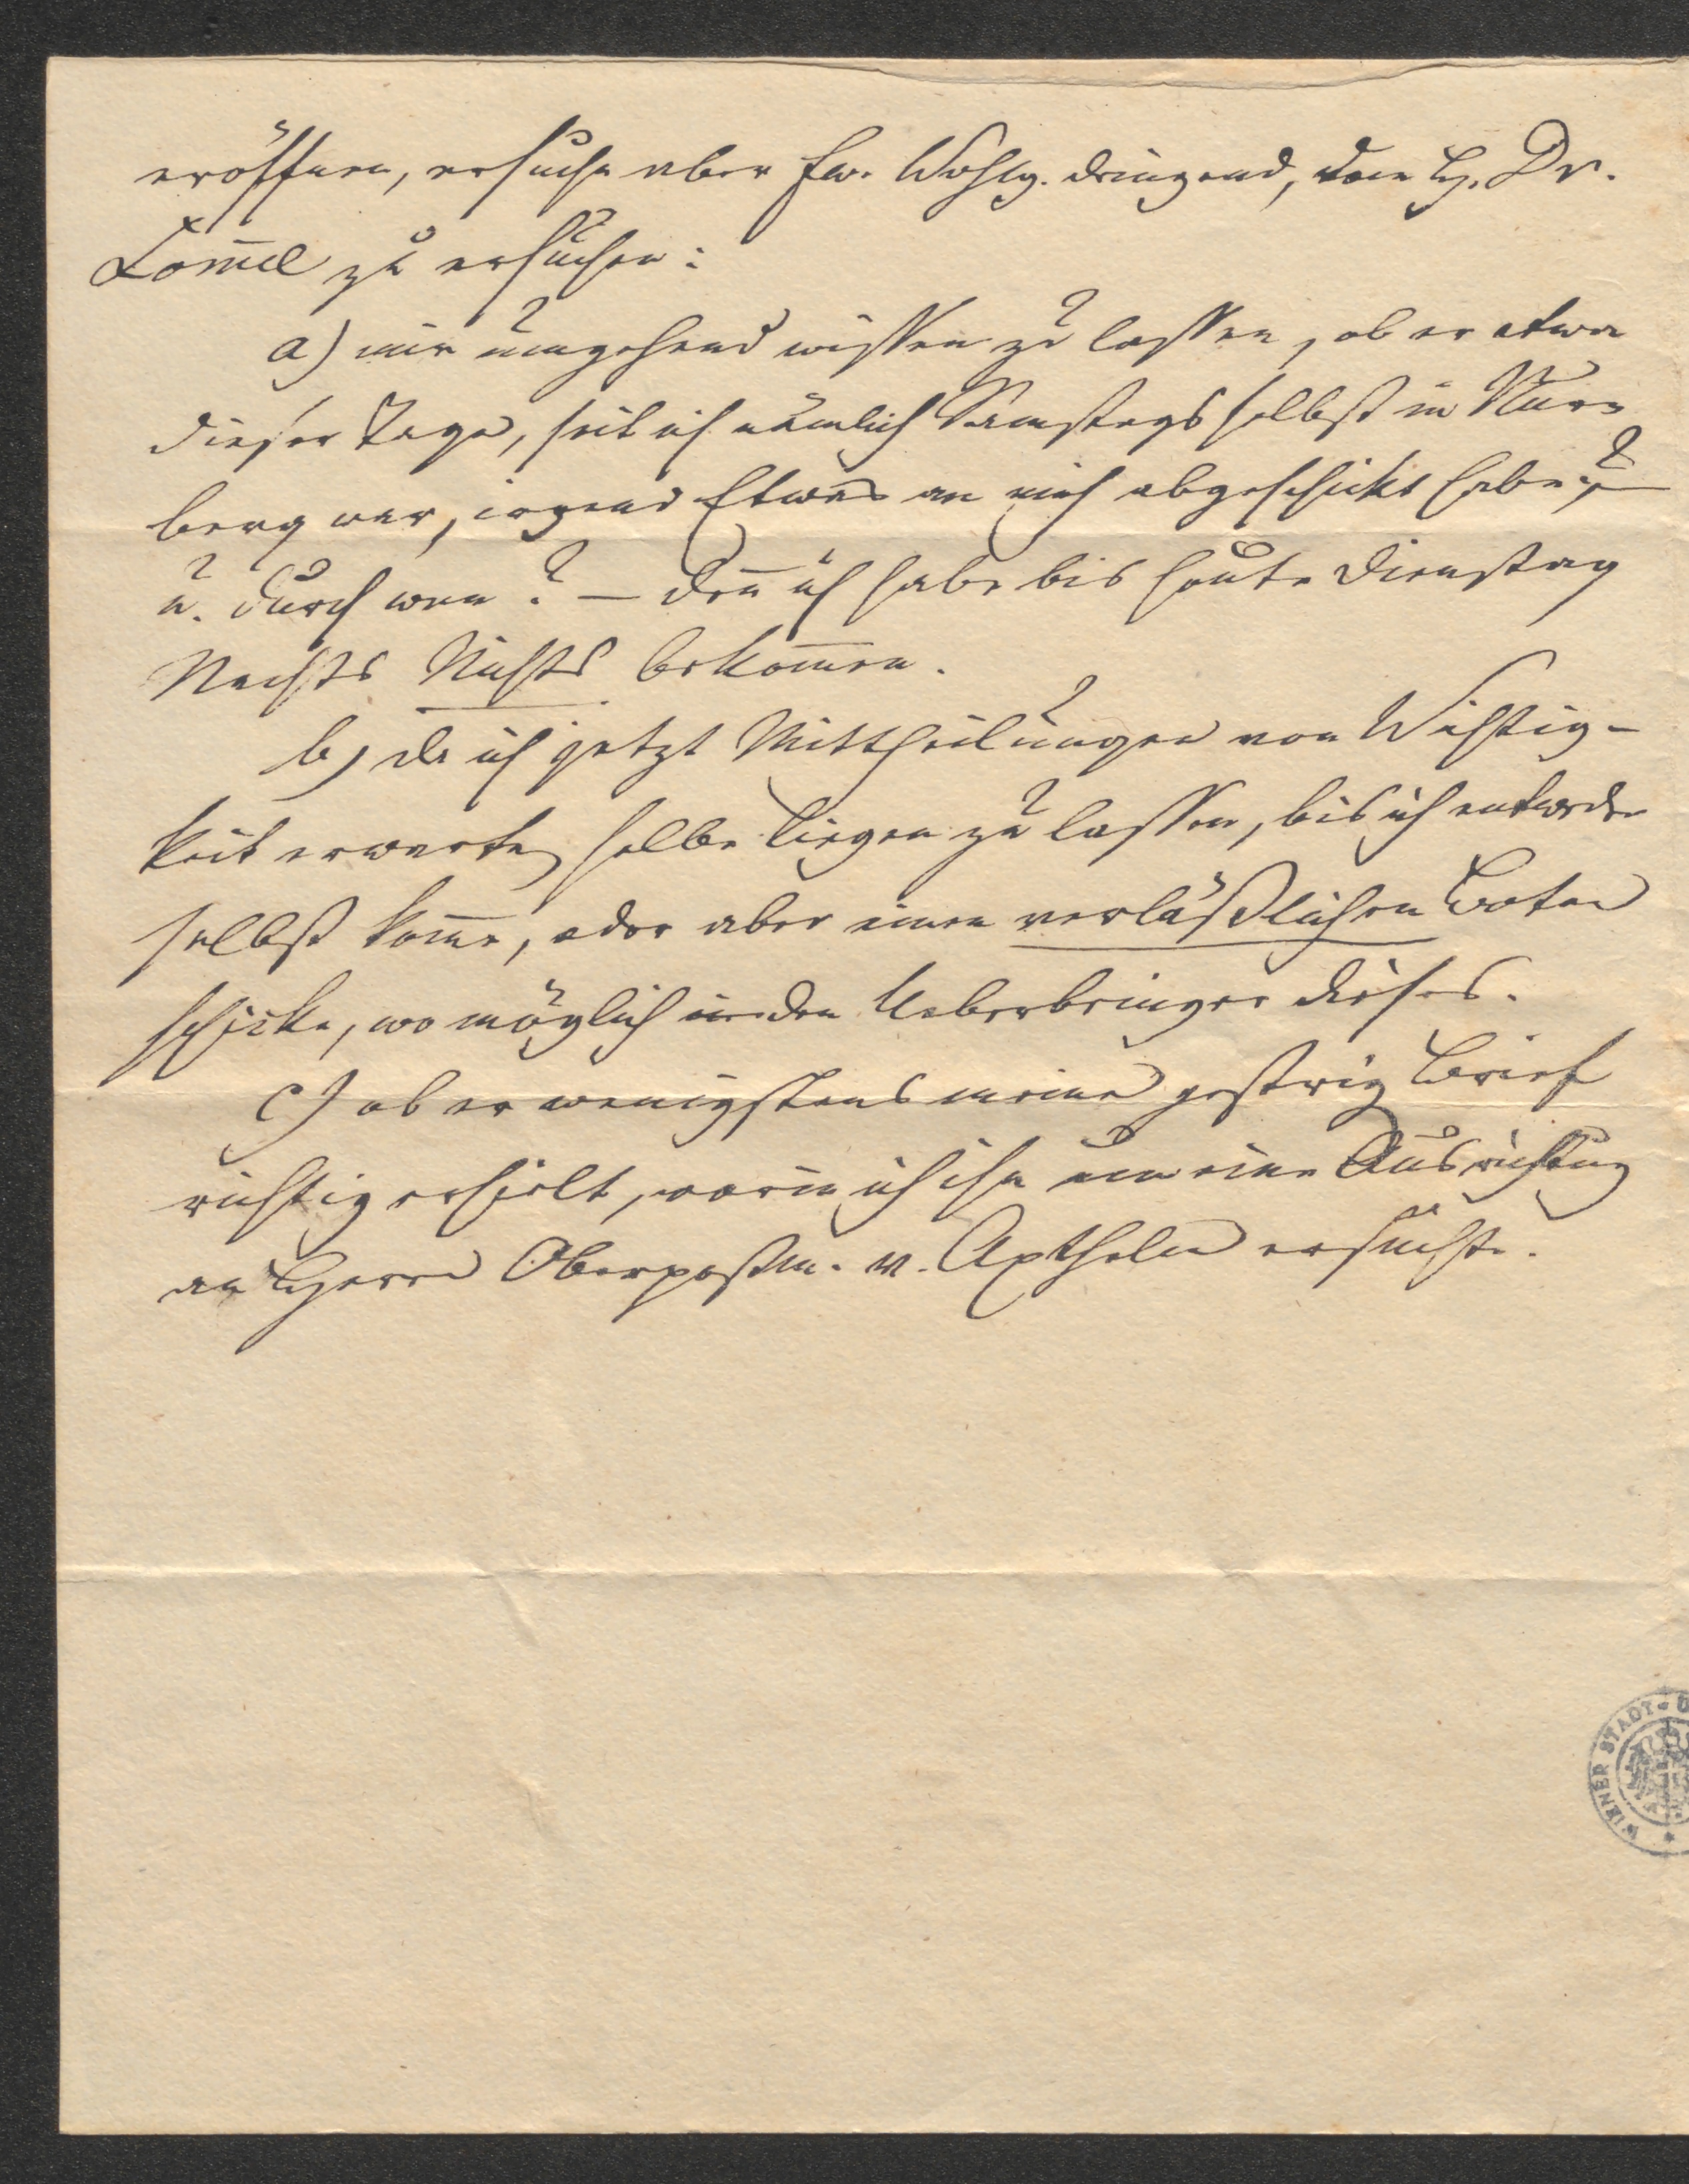 eröffnen, ersuche aber Ew. Wohlg. dringend, den H. Dr.
Lom̄el zu ersuchen:
a) mir umgehend wissen zu lassen, ob er etwa
dieser Tage, seit ich nämlich Samstags selbst in Nürn
berg war, irgend Etwas an mich abgeschickt habe, –
u. durch wen? – Den̄ ich habe bis heute Dienstag
Nachts Nichts bekom̄en.
b) da ich jetzt Mittheilungen von Wichtig-
keit erwarte, selbe liegen zu lassen, bis ich entweder
selbst kom̄e, oder aber einen verläßlichen Boten
schicke, wo möglich den Ueberbringer dieses.
c) ob er wenigstens meinen gestrig Brief
richtig erhielt, worin ich ihn um eine Ausrichtung
an Herrn Oberpostm. v. Axthelm ersuchte.
WIENER STADT-